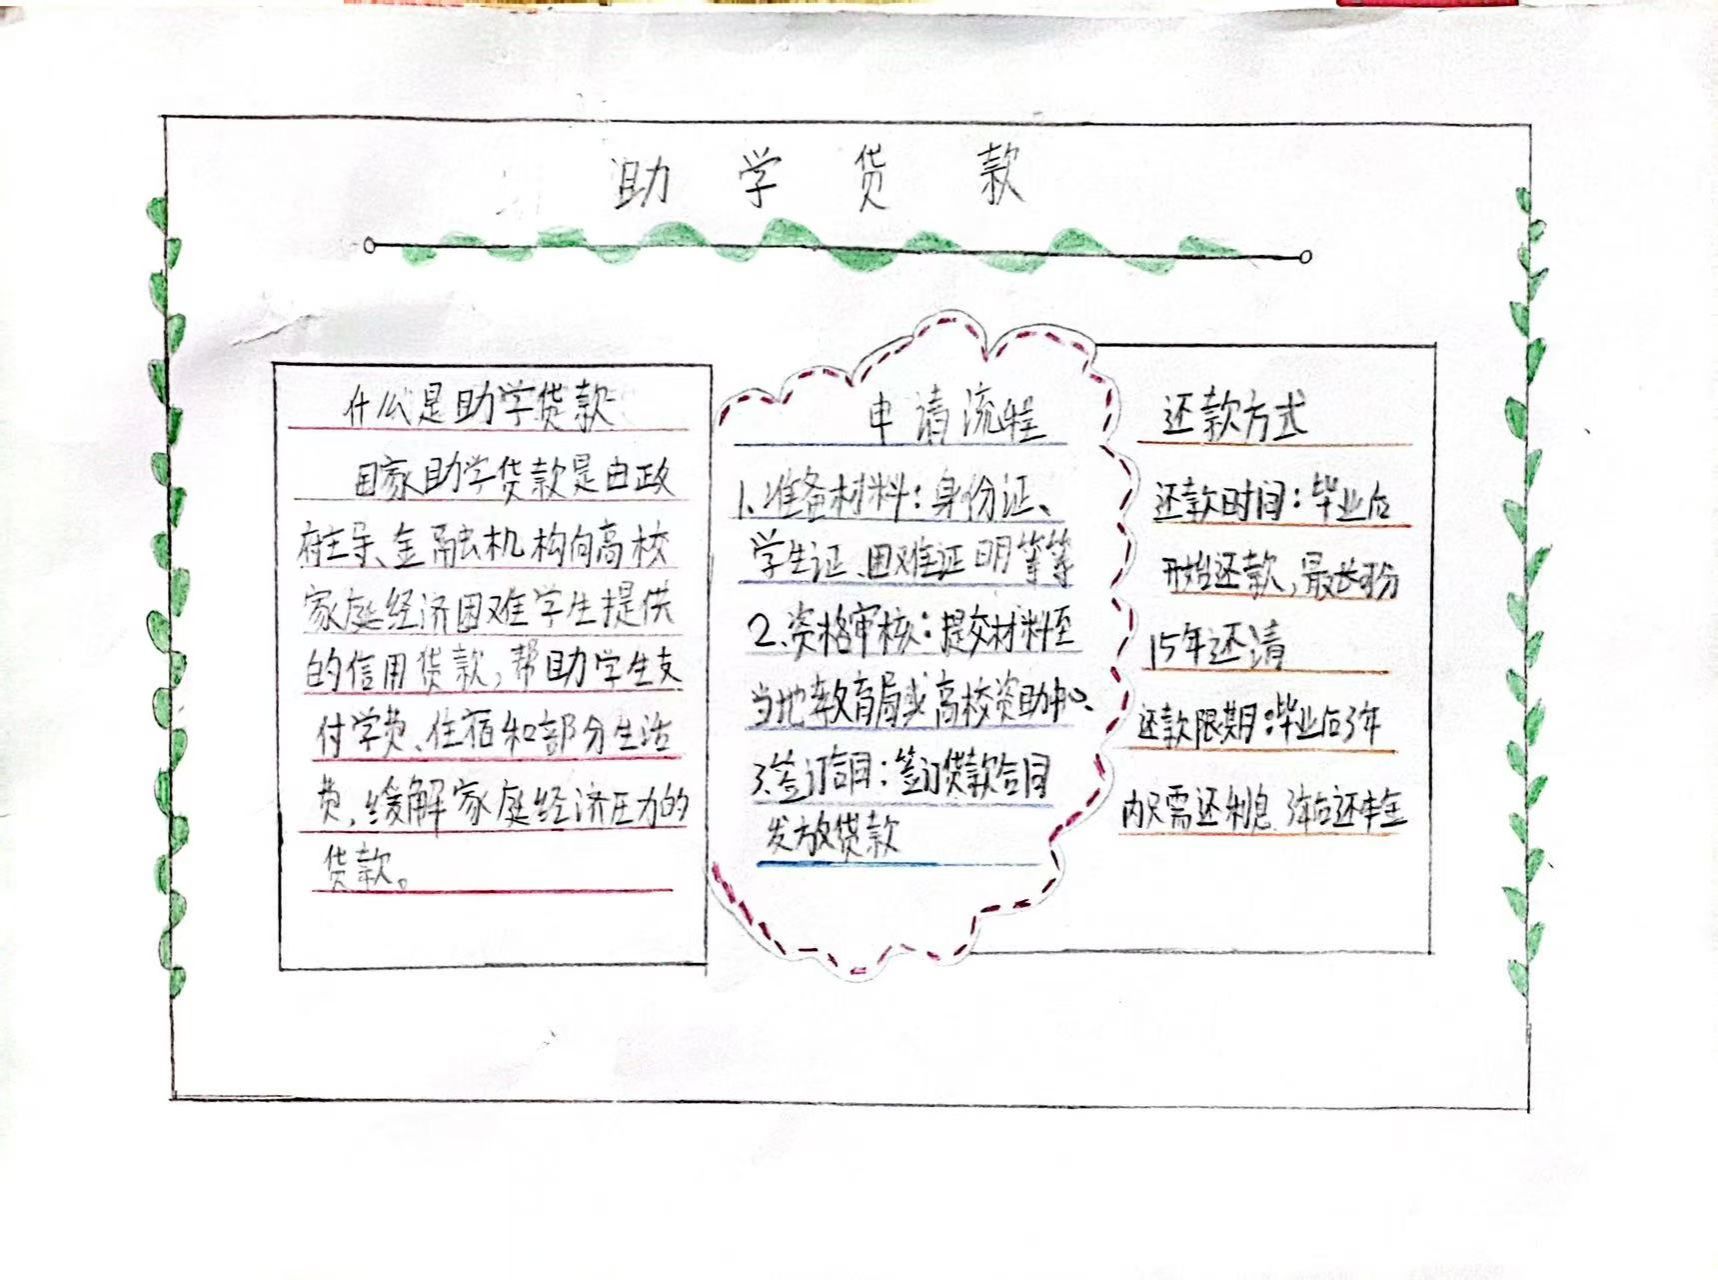 助学贷款
什么是助学贷款
国家助学贷款是由政
府主导、金融机构向高校
家庭经济困难学生提供
的信用贷款,帮助学生支
付学费、住宿和部分生活
费,缓解家庭经济压力的
贷款。
申请流程
1.准备材料:身份证、
学生证、困难证明等等
2.资格审核:提交材料至
当地教育局或高校资助中心、
3.签订合同:签订贷款合同
发放贷款
还款方式
还款时间:毕业后
开始还款,最长可分
15年还清
还款限期:毕业后3年
内只需还利息 3年后还本金